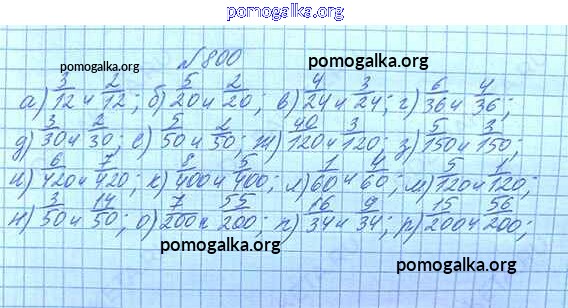 pomogalka.org
№ 800
pomogalka.org
pomogalka.org
а) 3/12 и 2/12; б) 5/20 и 2/20; в) 4/24 и 3/24; г) 6/36 и 4/36;
д) 3/30 и 2/30; е) 5/50 и 2/50; ж) 40/120 и 3/120; з) 5/150 и 3/150;
и) 6/420 и 7/420; к) 8/400 и 5/400; л) 1/60 и 4/60; м) 5/120 и 1/120;
н) 3/50 и 14/50; о) 7/200 и 55/200; п) 16/34 и 9/34; р) 15/200 и 56/200;
pomogalka.org
pomogalka.org